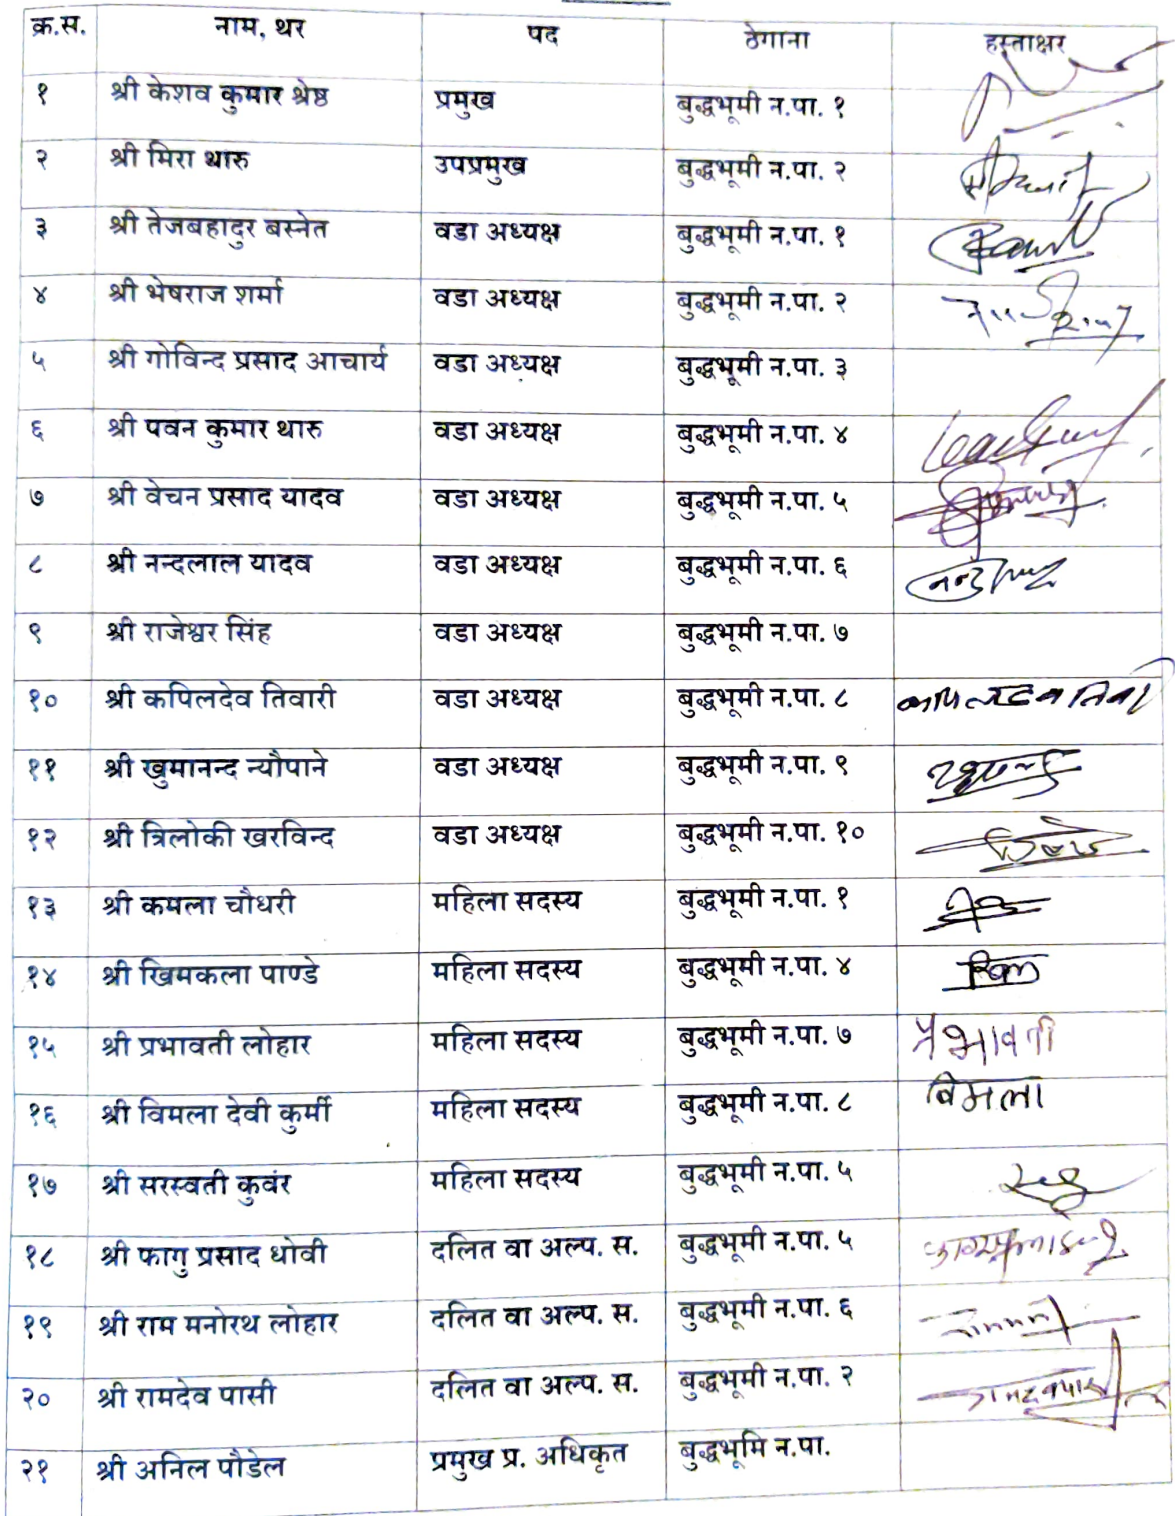 क्र.स. नाम, थर पद ठेगाना हस्ताक्षर
१ श्री केशव कुमार श्रेष्ठ प्रमुख बुद्धभूमी न.पा. १
२ श्री मिरा थारु उपप्रमुख बुद्धभूमी न.पा. २
३ श्री तेजबहादुर बस्नेत वडा अध्यक्ष बुद्धभूमी न.पा. १
४ श्री भेषराज शर्मा वडा अध्यक्ष बुद्धभूमी न.पा. २
५ श्री गोविन्द प्रसाद आचार्य वडा अध्यक्ष बुद्धभूमी न.पा. ३
६ श्री पवन कुमार थारु वडा अध्यक्ष बुद्धभूमी न.पा. ४
७ श्री वेचन प्रसाद यादव वडा अध्यक्ष बुद्धभूमी न.पा. ५
८ श्री नन्दलाल यादव वडा अध्यक्ष बुद्धभूमी न.पा. ६
९ श्री राजेश्वर सिंह वडा अध्यक्ष बुद्धभूमी न.पा. ७
१० श्री कपिलदेव तिवारी वडा अध्यक्ष बुद्धभूमी न.पा. ८
११ श्री खुमानन्द न्यौपाने वडा अध्यक्ष बुद्धभूमी न.पा. ९
१२ श्री त्रिलोकी खरविन्द वडा अध्यक्ष बुद्धभूमी न.पा. १०
१३ श्री कमला चौधरी महिला सदस्य बुद्धभूमी न.पा. १
१४ श्री खिमकला पाण्डे महिला सदस्य बुद्धभूमी न.पा. ४
१५ श्री प्रभावती लोहार महिला सदस्य बुद्धभूमी न.पा. ७
१६ श्री विमला देवी कुर्मी महिला सदस्य बुद्धभूमी न.पा. ८ बिमला
१७ श्री सरस्वती कुवंर महिला सदस्य बुद्धभूमी न.पा. ५
१८ श्री फागु प्रसाद धोवी दलित वा अल्प. स. बुद्धभूमी न.पा. ५
१९ श्री राम मनोरथ लोहार दलित वा अल्प. स. बुद्धभूमी न.पा. ६
२० श्री रामदेव पासी दलित वा अल्प. स. बुद्धभूमी न.पा. २
२१ श्री अनिल पौडेल प्रमुख प्र. अधिकृत बुद्धभूमि न.पा.